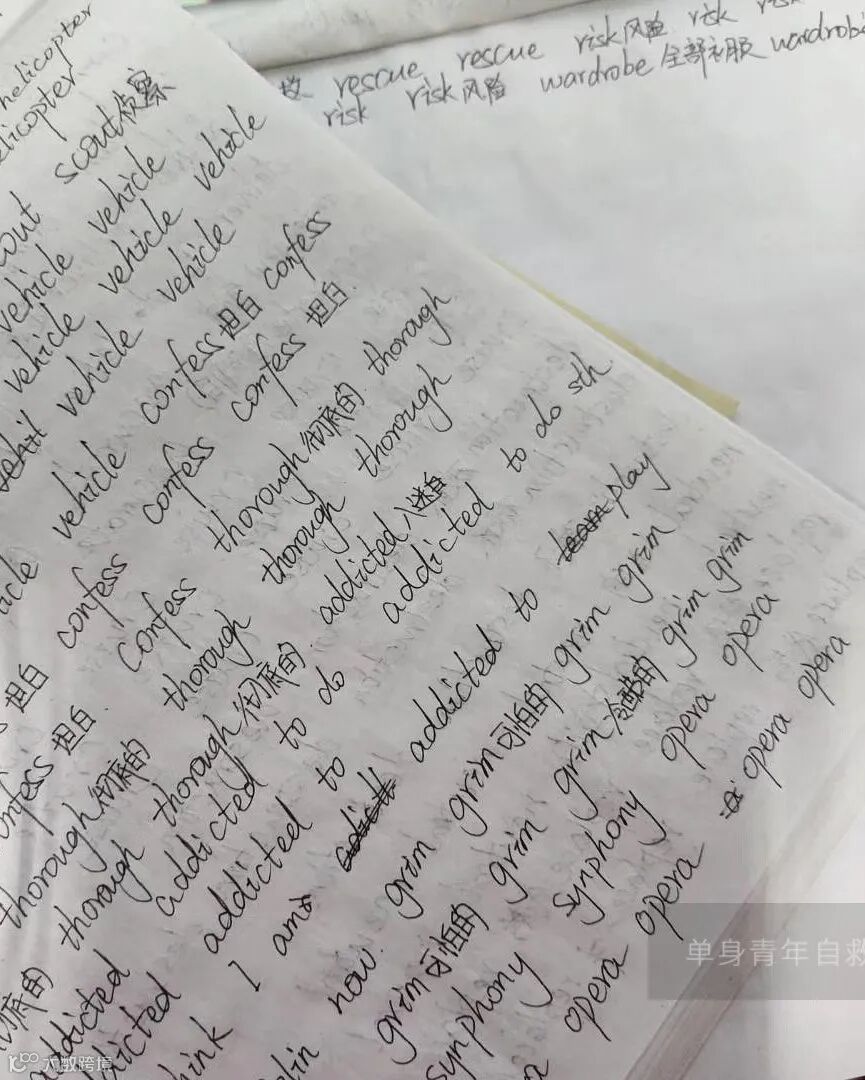 rescue rescue risk风险 risk
risk risk风险 wardrobe全部衣服 wardrobe
helicopter
helicopter
scout侦察
vehicle vehicle
vehicle vehicle vehicle
vehicle vehicle
vehicle confess坦白 confess
坦白 confess confess confess坦白
confess坦白. confess thorough彻底的. thorough
thorough彻底的 thorough thorough thorough
thorough thorough彻底的. addicted入迷的
addicted addicted to do addicted to do sth.
addicted addicted to
think I am addicted to play
now. grim grim可怕的 grim grim
grim可怕的 grim grim冷酷的 grim grim
symphony symphony opera opera
opera opera opera opera
单身青年自救
大数跨境